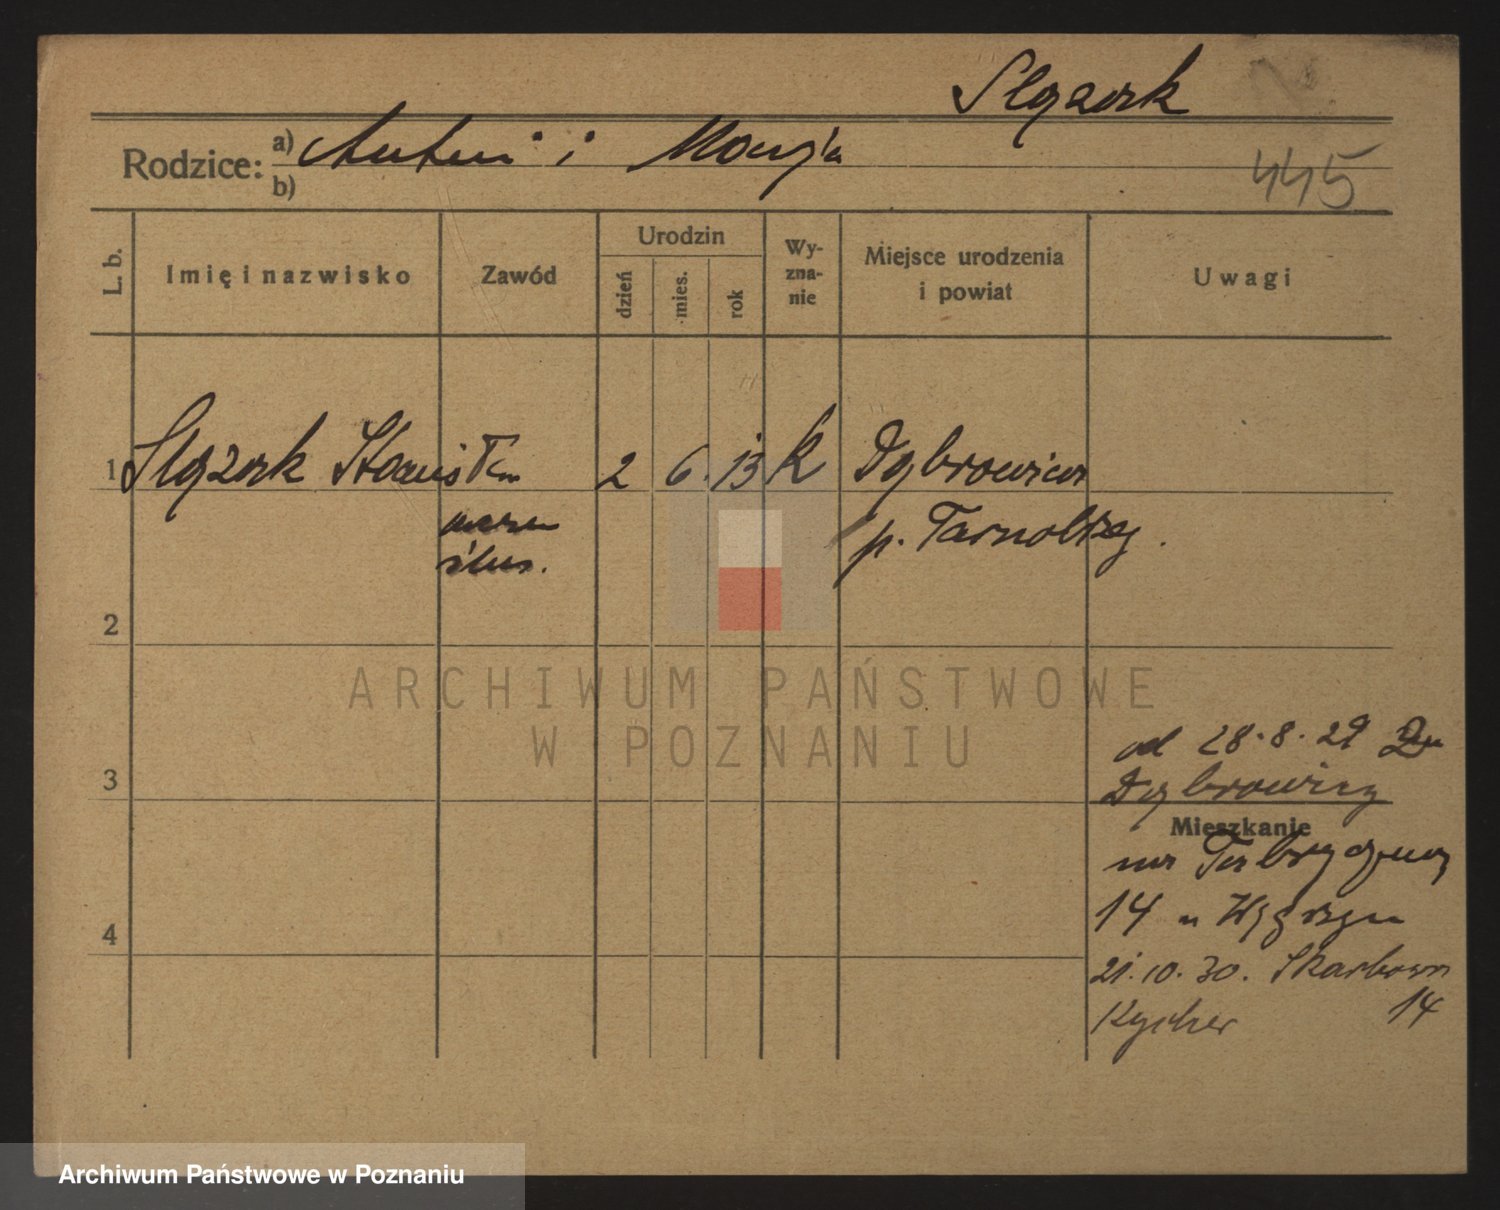 Ślązak
445
Rodzice: a) Antoni i Marja
b)
L. b.
Imię i nazwisko
Zawód
Urodzin
dzień
mies.
rok
Wy-
zna-
nie
Miejsce urodzenia
i powiat
Uwagi
1 Ślązak Stanisław 2 6. 13 k Dąbrowica
p. Tarnobrzeg.
ślus.
2
3
4
od 28.8.29
Dąbrowicy
Mieszkanie
na Fabryczną
14 u
21.10.30. Skarbowa
14
ARCHIWUM PAŃSTWOWE
W POZNANIU
Archiwum Państwowe w Poznaniu